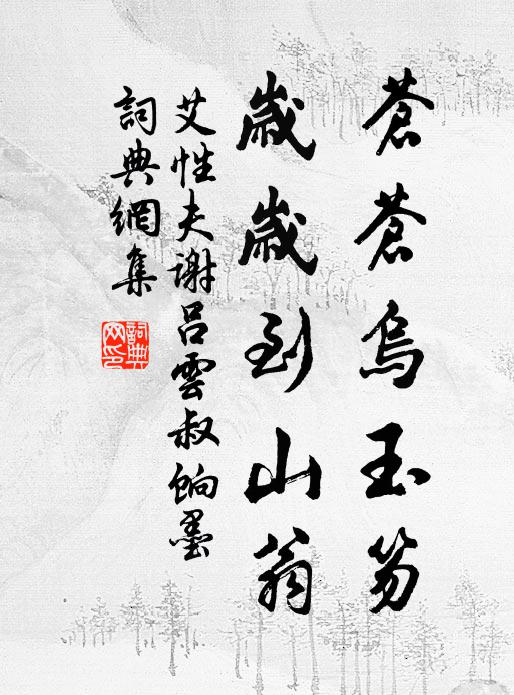 蒼蒼烏玉笏
歲歲到山翁
艾性夫謝呂雲叔餉墨
詞典網集
詞典網印